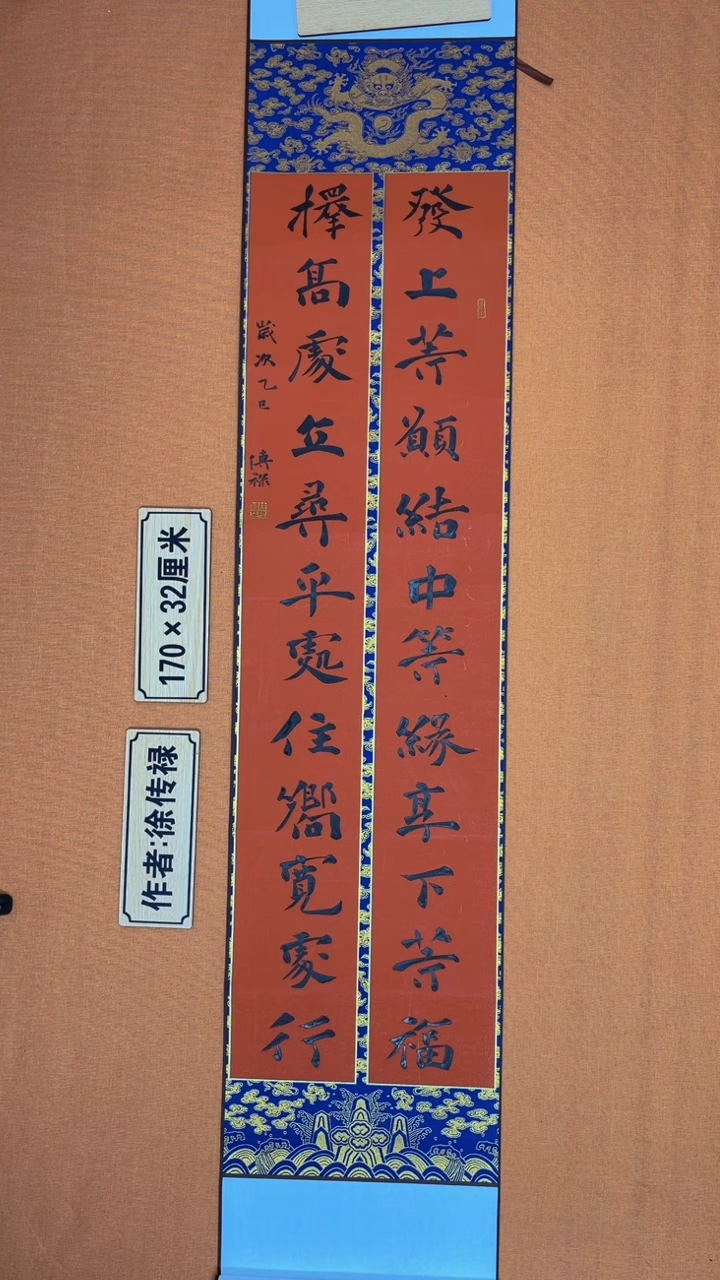 發上等願結中等緣享下等福
擇高處立尋平處住嚮寬處行
歲次乙巳
傳祿
170×32厘米
作者:徐传禄